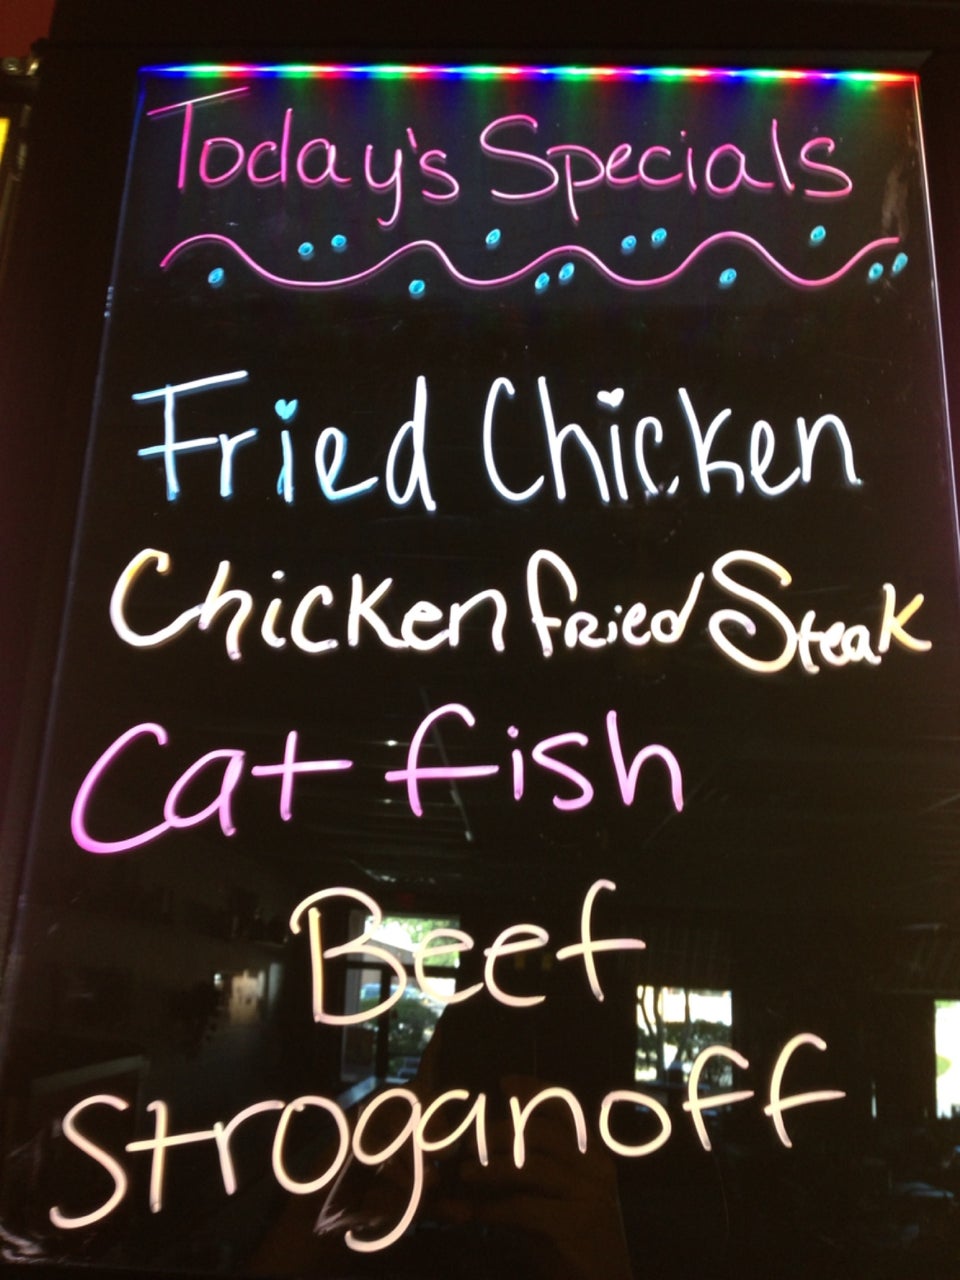 Today's Specials
Fried Chicken
Chicken fried Steak
Cat fish
Beef
Stroganoff